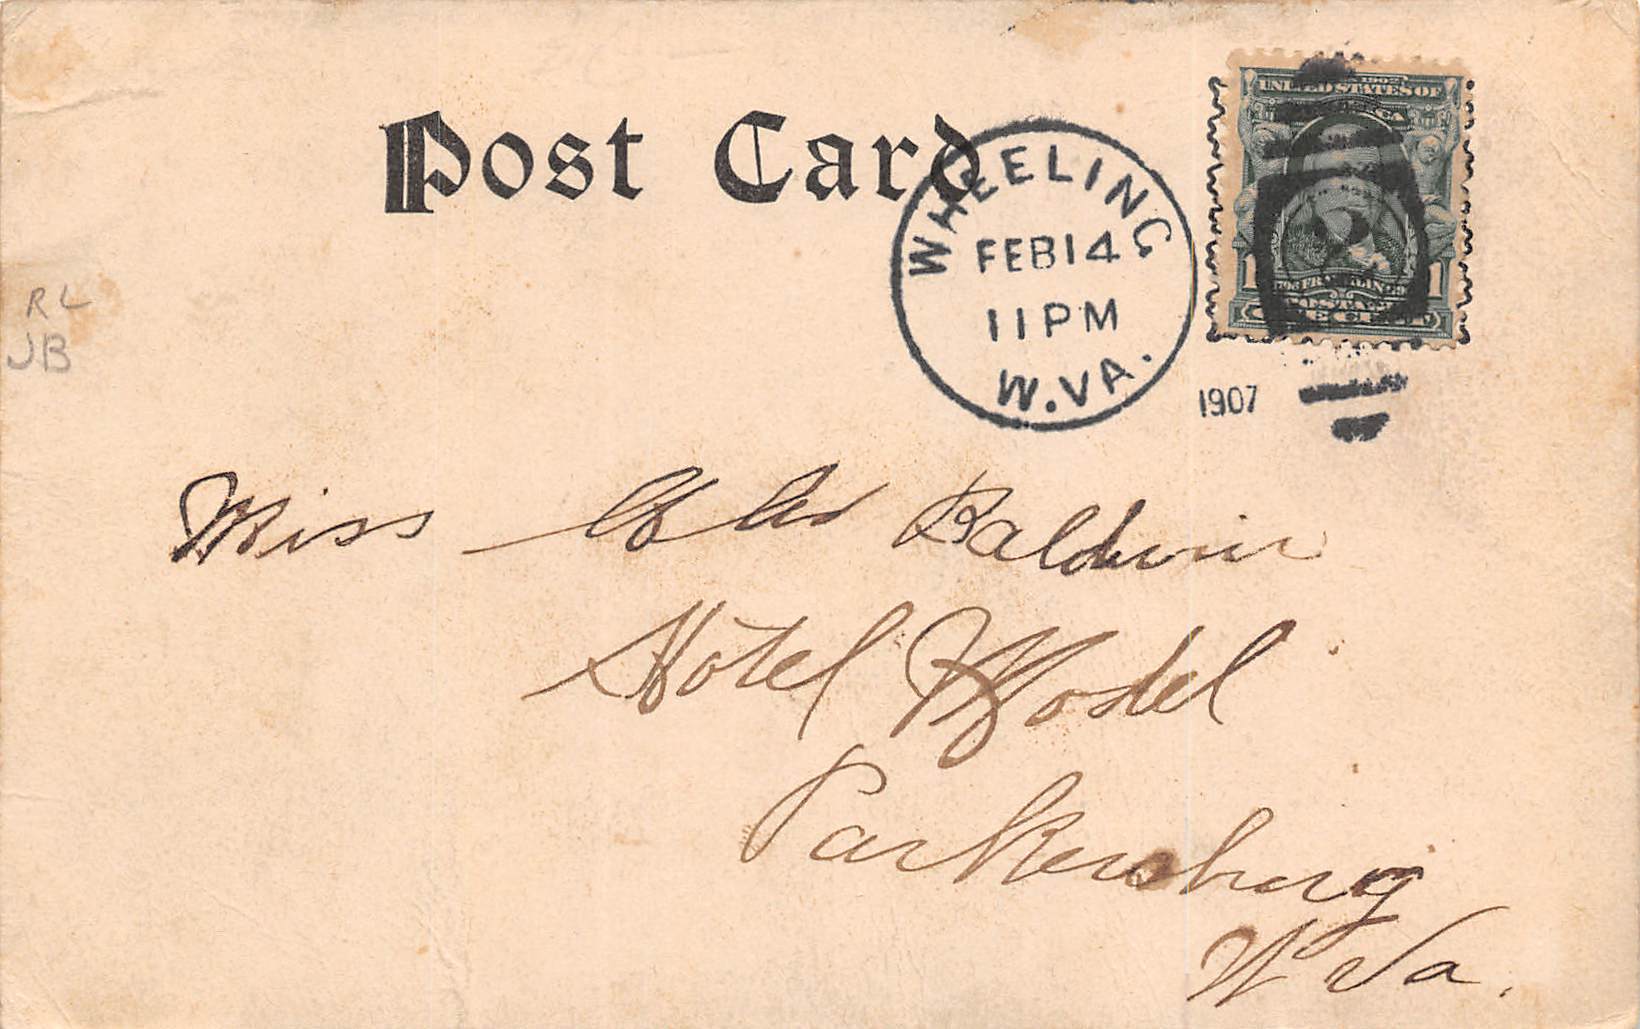 Post Card
WHEELING
FEB 14
11 PM
W.VA.
1907
SERIES 1902
UNITED STATES OF AMERICA
FRANKLIN
POSTAGE
1 ONE CENT 1
2
RL
JB
Miss Baldwin
Hotel Model
Parkersburg
W Va.